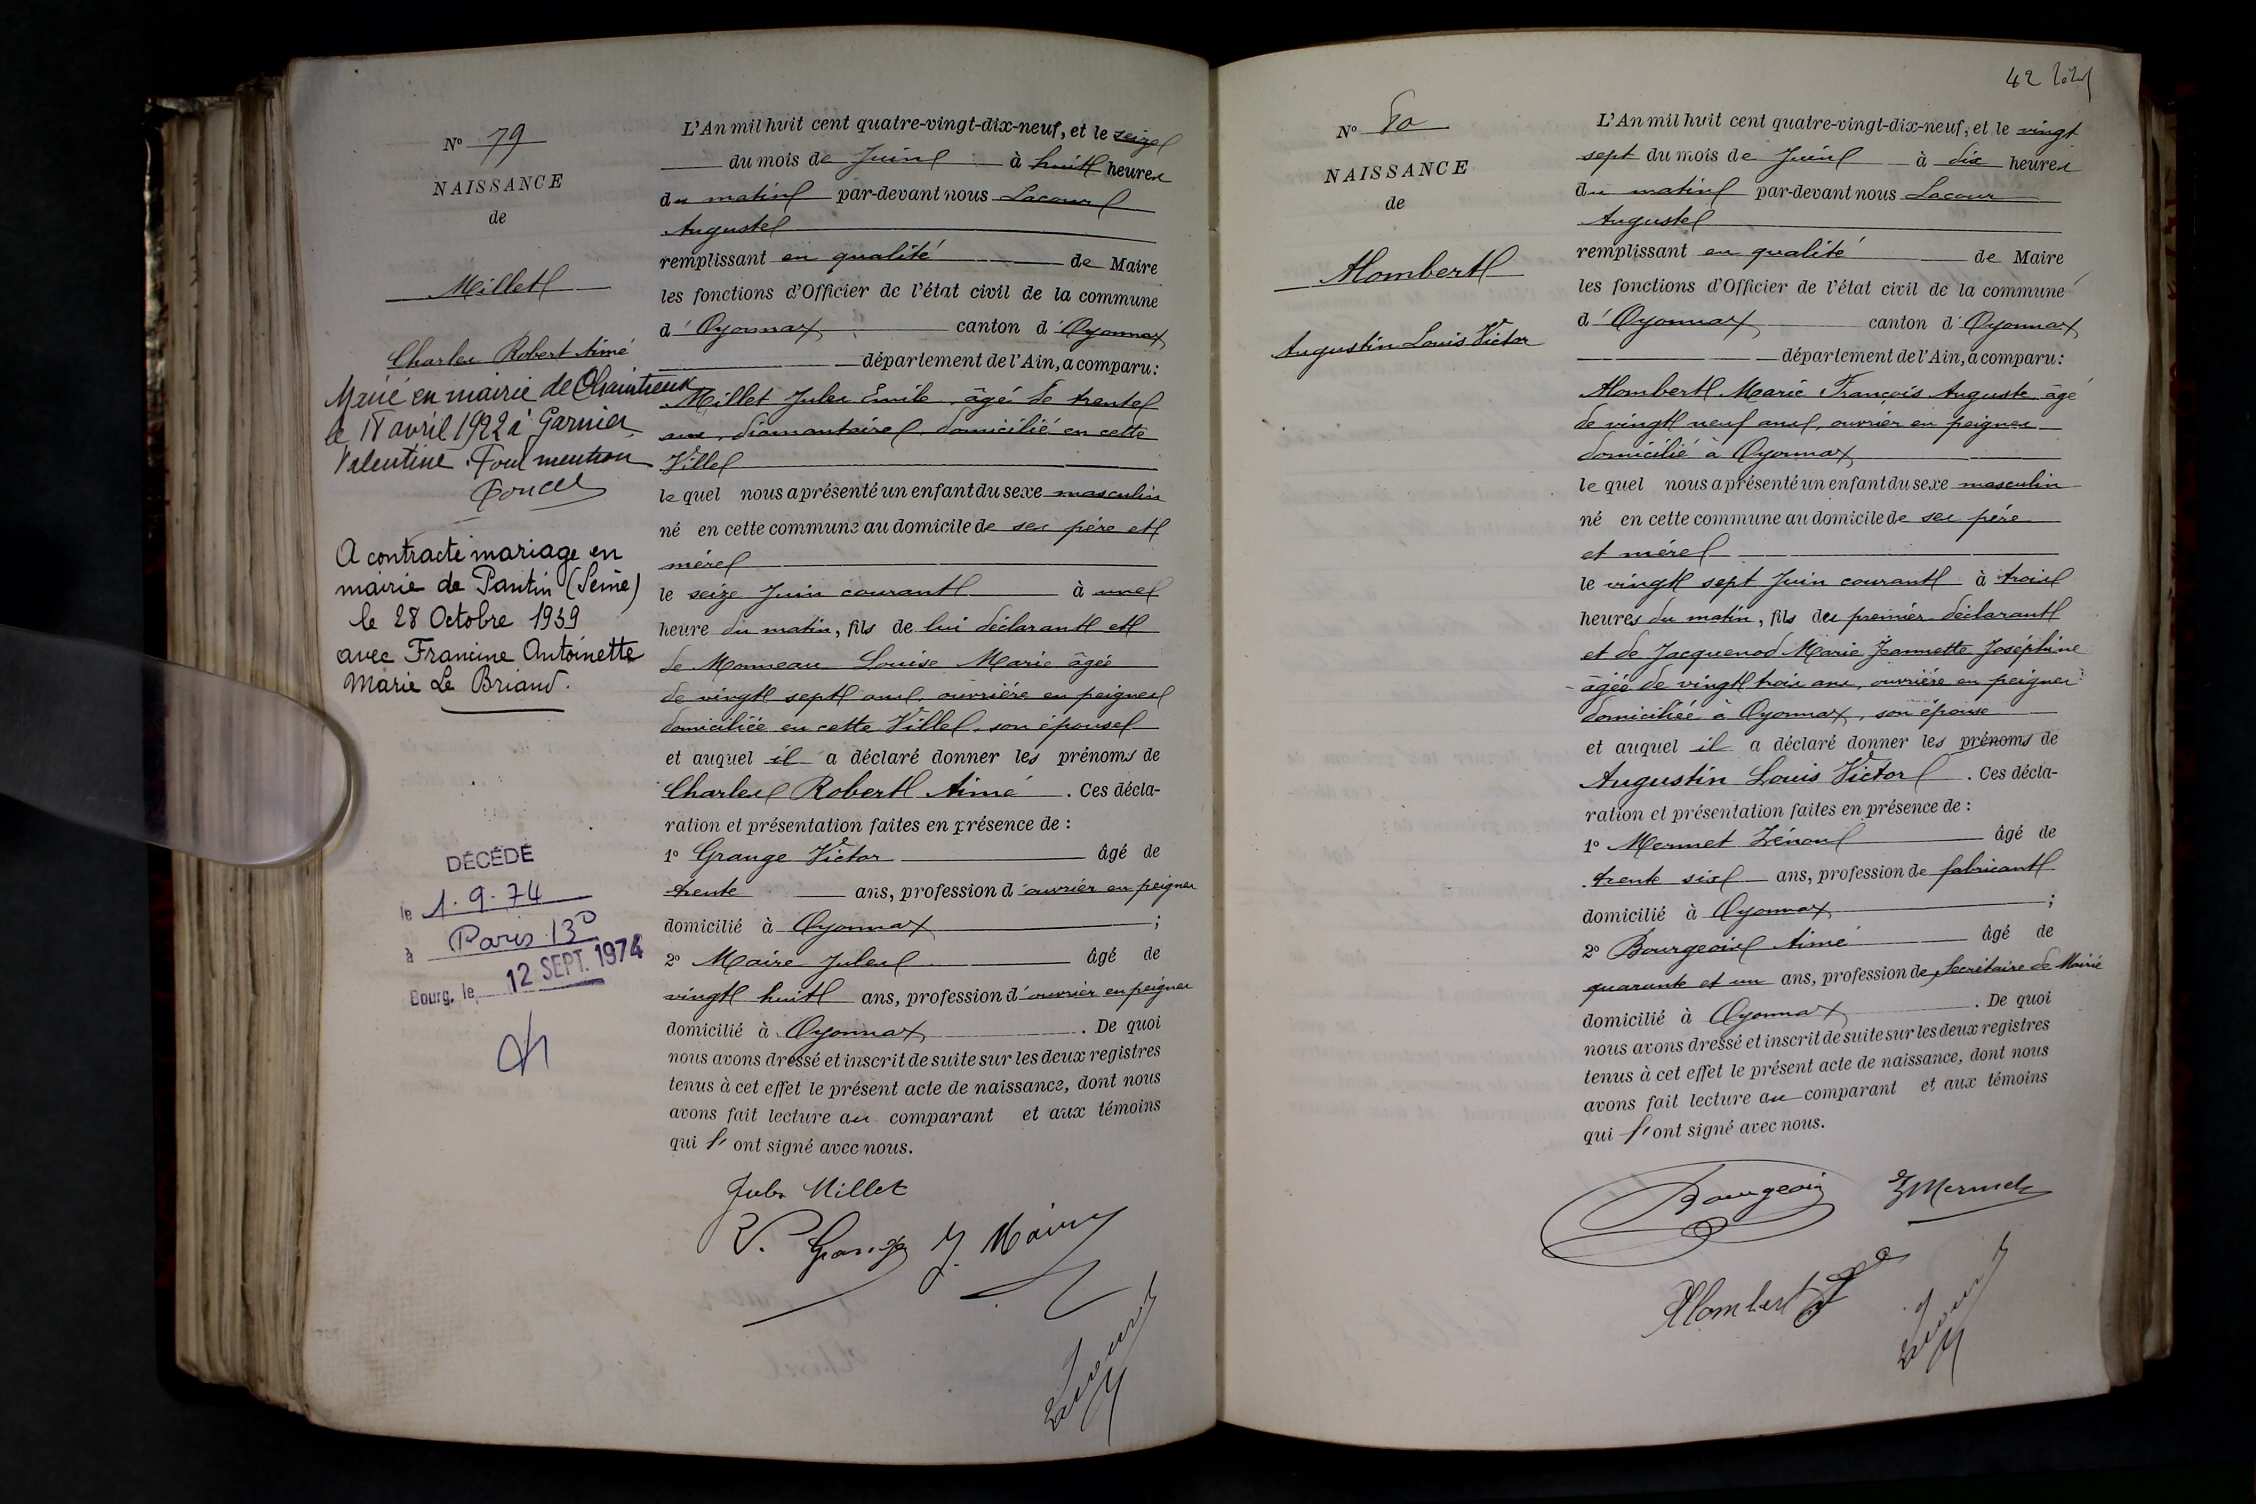 N° 79
NAISSANCE
de
Millet
Charles Robert Aimé
Marié en mairie de
le avril 1922 à Garnier
Valentine. Pour mention
A contracté mariage en
mairie de Pantin (Seine)
le 28 Octobre 1939
avec Francine Antoinette
Marie Le Briand.
DÉCÉDÉ
le 1.9.74
à Paris 13e
Bourg, le 12 SEPT. 1974
L'An mil huit cent quatre-vingt-dix-neuf, et le seize
du mois de Juin à huit heures
du matin par-devant nous Lacour
Auguste
remplissant en qualité de Maire
les fonctions d'Officier de l'état civil de la commune
d'Oyonnax canton d'Oyonnax
département de l'Ain, a comparu:
Millet Jules Emile, âgé de trente
ans, diamantaire, domicilié en cette
Ville
lequel nous a présenté un enfant du sexe masculin
né en cette commune au domicile de ses père et
mère
le seize Juin courant à une
heure du matin, fils de lui déclarant et
de Monneau Louise Marie âgée
de vingt sept ans, ouvrière en peignes
domiciliée en cette Ville, son épouse
et auquel il a déclaré donner les prénoms de
Charles Robert Aimé. Ces décla-
ration et présentation faites en présence de :
1° Grange Victor âgé de
trente ans, profession d'ouvrier en peignes
domicilié à Oyonnax ;
2° Maire Jules âgé de
vingt huit ans, profession d'ouvrier en peignes
domicilié à Oyonnax. De quoi
nous avons dressé et inscrit de suite sur les deux registres
tenus à cet effet le présent acte de naissance, dont nous
avons fait lecture au comparant et aux témoins
qui l'ont signé avec nous.
Jules Millet
V. Grange J. Maire
Lacour
42
N° 80
NAISSANCE
de
Alombert
Augustin Louis Victor
L'An mil huit cent quatre-vingt-dix-neuf, et le vingt
sept du mois de Juin à dix heures
du matin par-devant nous Lacour
Auguste
remplissant en qualité de Maire
les fonctions d'Officier de l'état civil de la commune
d'Oyonnax canton d'Oyonnax
département de l'Ain, a comparu:
Alombert Marie François Auguste âgé
de vingt neuf ans, ouvrier en peignes
domicilié à Oyonnax
lequel nous a présenté un enfant du sexe masculin
né en cette commune au domicile de ses père
et mère
le vingt sept Juin courant à trois
heures du matin, fils des premier déclarant
et de Jacquenod Marie Jeannette Joséphine
âgée de vingt trois ans, ouvrière en peignes
domiciliée à Oyonnax, son épouse
et auquel il a déclaré donner les prénoms de
Augustin Louis Victor. Ces décla-
ration et présentation faites en présence de :
1° Mermet Zénon âgé de
trente six ans, profession de fabricant
domicilié à Oyonnax ;
2° Bourgeois Aimé âgé de
quarante et un ans, profession de Secrétaire de Mairie
domicilié à Oyonnax. De quoi
nous avons dressé et inscrit de suite sur les deux registres
tenus à cet effet le présent acte de naissance, dont nous
avons fait lecture au comparant et aux témoins
qui l'ont signé avec nous.
Bourgeois Z Mermet
Alombert
Lacour